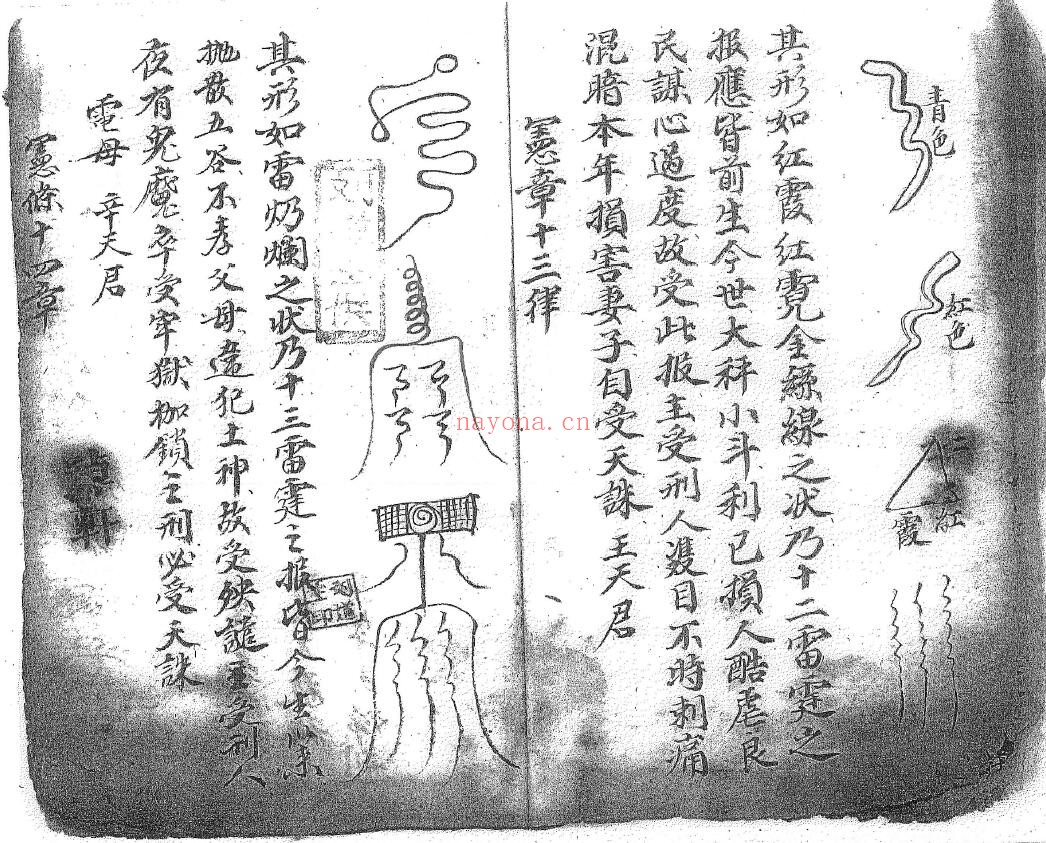 青色
紅色
仁
紅
霞
其形如紅霞紅霓金絲線之状乃十二雷霆之
报應皆前生今世大秤小斗利已損人酷虐良
民謀心過度故受此报主受刑人雙目不時刺痛
混暗本年損害妻子自受天誅 王天君
憲章十三律
其形如雷灼爛之状乃十三雷霆之报皆今生
抛散五谷不孝父母違犯土神故受殃譴主受刑人
夜有鬼魔卒受牢獄枷鎖之刑必受天誅
電母 辛天君
憲條十四章
nayona.cn